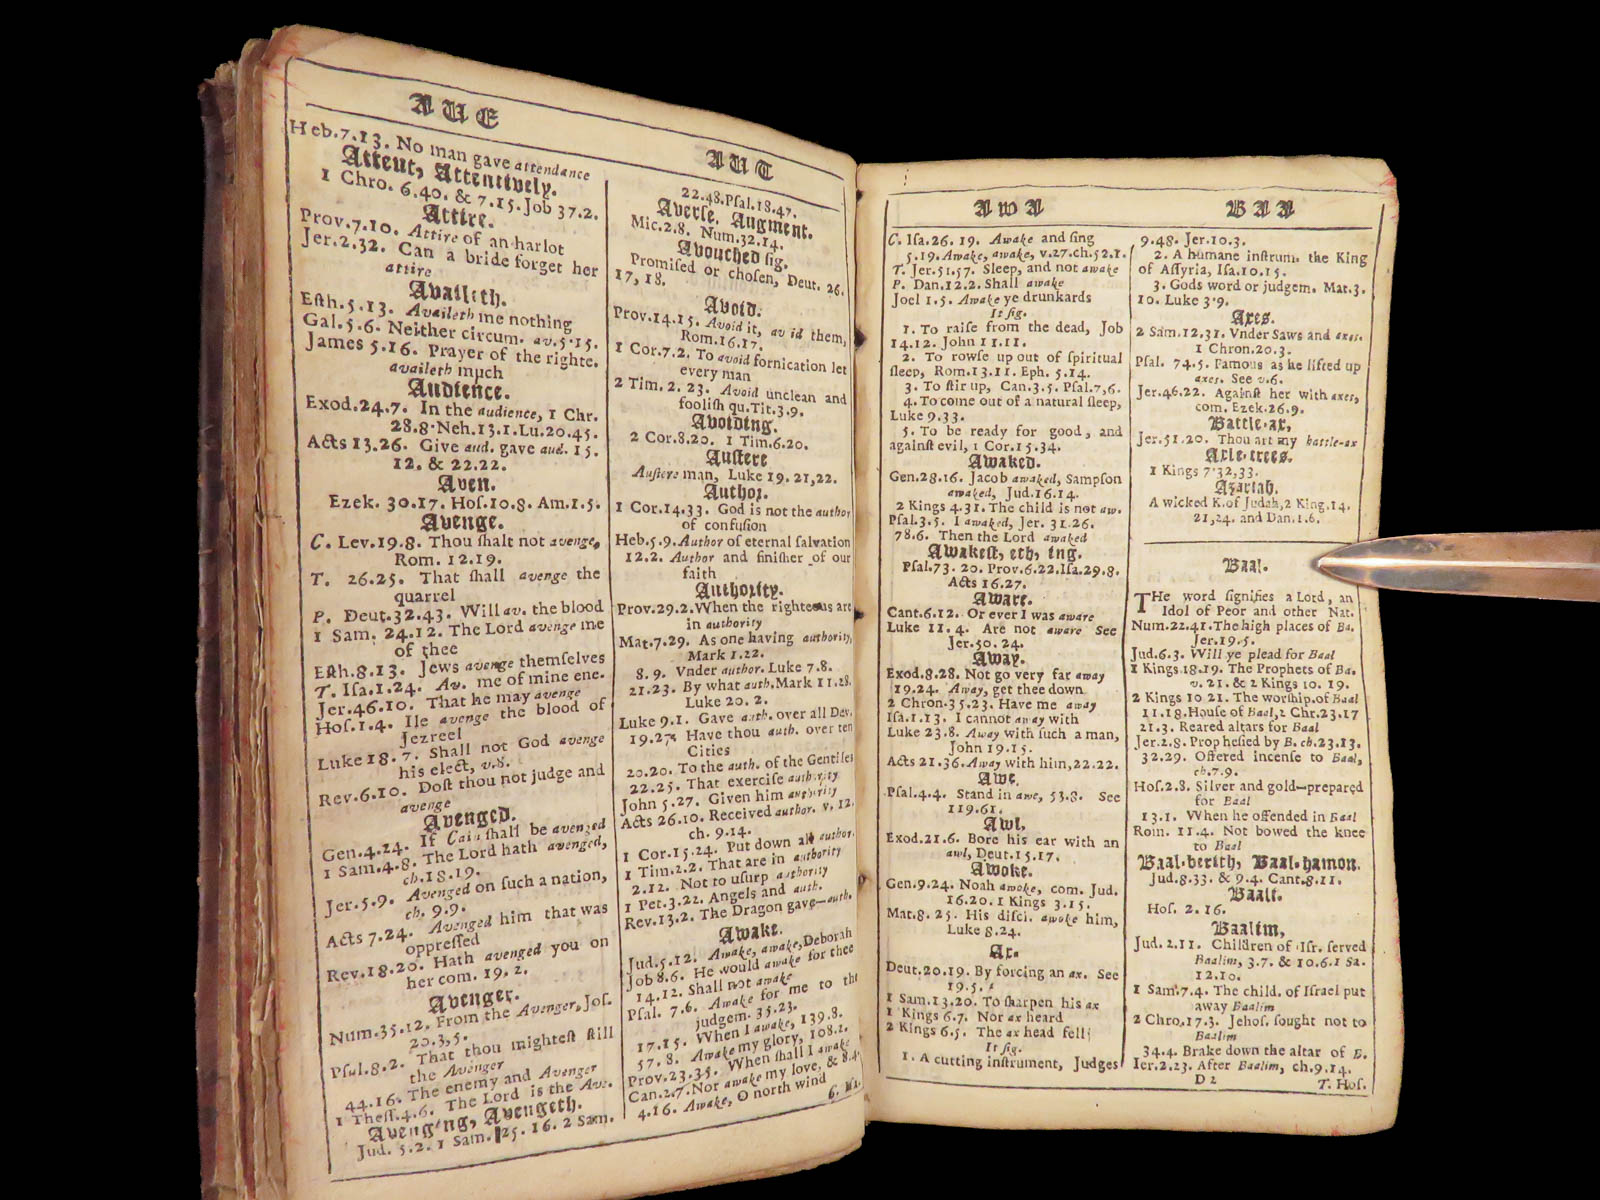 AUE
Heb.7.13. No man gave attendance
Attent, Attentively.
1 Chro. 6.40. & 7.15. Job 37.2.
Attire.
Prov.7.10. Attire of an harlot
Jer.2.32. Can a bride forget her
attire
Availeth.
Eſth.5.13. Availeth me nothing
Gal.5.6. Neither circum. av.5.15.
James 5.16. Prayer of the righte.
availeth much
Audience.
Exod.24.7. In the audience, 1 Chr.
28.8. Neh.13.1. Lu.20.45.
Acts 13.26. Give aud. gave aud. 15.
12. & 22.22.
Aven.
Ezek. 30.17. Hoſ.10.8. Am.1.5.
Avenge.
C. Lev.19.8. Thou ſhalt not avenge,
Rom. 12.19.
T. 26.25. That ſhall avenge the
quarrel
P. Deut.32.43. Will av. the blood
1 Sam. 24.12. The Lord avenge me
of thee
Eſth.8.13. Jews avenge themſelves
T. Iſa.1.24. Av. me of mine ene.
Jer.46.10. That he may avenge
Hoſ.1.4. Ile avenge the blood of
Jezreel
Luke 18.7. Shall not God avenge
his elect, v.8.
Rev.6.10. Doſt thou not judge and
avenge
Avenged.
Gen.4.24. If Cain ſhall be avenged
1 Sam.4.8. The Lord hath avenged,
ch.18.19.
Jer.5.9. Avenged on ſuch a nation,
ch. 9.9.
Acts 7.24. Avenged him that was
oppreſſed
Rev.18.20. Hath avenged you on
her com. 19. 2.
Avenger.
Num.35.12. From the Avenger, Joſ.
20.3,5.
Pſal.8.2. That thou mighteſt ſtill
the Avenger
44.16. The enemy and Avenger
1 Theſſ.4.6. The Lord is the Ave.
Avenging, Avengeth.
Jud. 5.2. 1 Sam. 25. 16. 2 Sam.
AUT
22.48. Pſal.18.47.
Averſe. Augment.
Mic.2.8. Num.32.14.
Avouched ſig.
Promiſed or choſen, Deut. 26.
17, 18.
Avoid.
Prov.14.15. Avoid it, av id them,
Rom.16.17.
1 Cor.7.2. To avoid fornication let
every man
2 Tim. 2. 23. Avoid unclean and
fooliſh qu. Tit.3.9.
Avoiding.
2 Cor.8.20. 1 Tim.6.20.
Auſtere
Auſtere man, Luke 19. 21,22.
Author.
1 Cor.14.33. God is not the author
of confuſion
Heb.5.9. Author of eternal ſalvation
12.2. Author and finiſher of our
faith
Authority.
Prov.29.2. When the righteous are
in authority
Mat.7.29. As one having authority,
Mark 1.22.
8. 9. Vnder author. Luke 7.8.
21.23. By what auth. Mark 11.28.
Luke 20. 2.
Luke 9.1. Gave auth. over all Dev.
19.27. Have thou auth. over ten
Cities
20.20. To the auth. of the Gentiles
22.25. That exerciſe authority
John 5.27. Given him authority
Acts 26.10. Received author. v. 12.
ch. 9.14.
1 Cor.15.24. Put down all author.
1 Tim.2.2. That are in authority
2.12. Not to uſurp authority
1 Pet.3.22. Angels and auth.
Rev.13.2. The Dragon gave—auth.
Awake.
Jud.5.12. Awake, awake, Deborah
Job 8.6. He would awake for thee
14.12. Shall not awake
Pſal. 7.6. Awake for me to the
judgem. 35.23.
17.15. When I awake, 139.8.
57. 8. Awake my glory, 108.2.
Prov.23.35. When ſhall I awake
Can.2.7. Nor awake my love, & 8.4.
4.16. Awake, O north wind
AWA
C. Iſa.26. 19. Awake and ſing
5.19. Awake, awake, v.27.ch.52.1.
T. Jer.51.57. Sleep, and not awake
P. Dan.12.2. Shall awake
Joel 1.5. Awake ye drunkards
It ſig.
1. To raiſe from the dead, Job
14.12. John 11.11.
2. To rowſe up out of ſpiritual
ſleep, Rom.13.11. Eph. 5.14.
3. To ſtir up, Can.3.5. Pſal.7,6.
4. To come out of a natural ſleep,
Luke 9.33.
5. To be ready for good, and
againſt evil, 1 Cor.15.34.
Awaked.
Gen.28.16. Jacob awaked, Sampſon
awaked, Jud.16.14.
2 Kings 4.31. The child is not aw.
Pſal.3.5. I awaked, Jer. 31.26.
78.6. Then the Lord awaked
Awakeſt, eth, ing.
Pſal.73. 20. Prov.6.22. Iſa.29.8.
Acts 16.27.
Aware.
Cant.6.12. Or ever I was aware
Luke 11.4. Are not aware See
Jer.50.24.
Away.
Exod.8.28. Not go very far away
19.24. Away, get thee down
2 Chron.35.23. Have me away
Iſa.1.13. I cannot away with
Luke 23.8. Away with ſuch a man,
John 19.15.
Acts 21.36. Away with him, 22.22.
Awe.
Pſal.4.4. Stand in awe, 53.8. See
119.61.
Awl,
Exod.21.6. Bore his ear with an
awl, Deut.15.17.
Awoke.
Gen.9.24. Noah awoke, com. Jud.
16.20. 1 Kings 3.15.
Mat.8.25. His diſci. awoke him,
Luke 8.24.
Ax.
Deut.20.19. By forcing an ax. See
19.5.
1 Sam.13.20. To ſharpen his ax
1 Kings 6.7. Nor ax heard
2 Kings 6.5. The ax head fell;
It ſig.
1. A cutting inſtrument, Judges
BAA
9.48. Jer.10.3.
2. A humane inſtrum. the King
of Aſſyria, Iſa.10.15.
3. Gods word or judgem. Mat.3.
10. Luke 3.9.
Axes.
2 Sam.12.31. Vnder Saws and axes.
1 Chron.20.3.
Pſal. 74.5. Famous as he lifted up
axes. See v.6.
Jer.46.22. Againſt her with axes,
com. Ezek.26.9.
Battle-ax,
Jer.51.20. Thou art my battle-ax
Axle-trees.
1 Kings 7.32,33.
Azariah.
A wicked K. of Judah, 2 King.14.
21,24. and Dan.1.6.
Baal.
THe word ſignifies a Lord, an
Idol of Peor and other Nat.
Num.22.41. The high places of Ba.
Jer.19.5.
Jud.6.3. Will ye plead for Baal
1 Kings.18.19. The Prophets of Ba.
v.21. & 2 Kings 10. 19.
2 Kings 10 21. The worſhip of Baal
11.18. Houſe of Baal, 2 Chr.23.17
21.3. Reared altars for Baal
Jer.2.8. Propheſied by B. ch.23.13.
32.29. Offered incenſe to Baal,
ch.7.9.
Hoſ.2.8. Silver and gold—prepared
for Baal
13.1. When he offended in Baal
Rom. 11.4. Not bowed the knee
to Baal
Baal-berith, Baal-hamon.
Jud.8.33. & 9.4. Cant.8.11.
Baali.
Hoſ. 2.16.
Baalim,
Jud. 2.11. Children of Iſr. ſerved
Baalim, 3.7. & 10.6. 1 Sa.
12.10.
1 Sam.7.4. The child. of Iſrael put
away Baalim
2 Chro.17.3. Jehoſ. ſought not to
Baalim
34.4. Brake down the altar of B.
Jer.2.23. After Baalim, ch.9.14.
D 2
T. Hoſ.